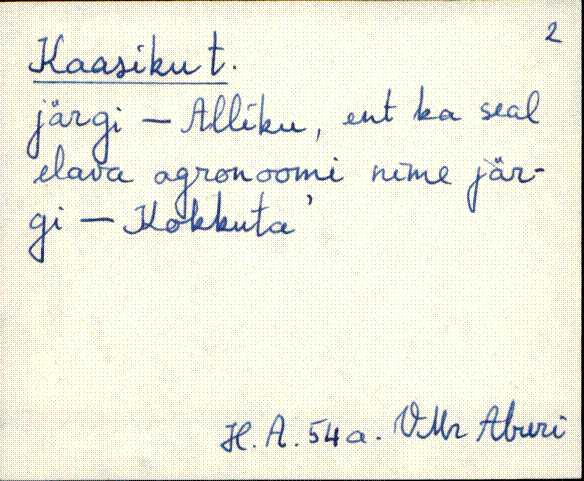 2
Kaasiku t.
järgi – Alliku, ent ka seal
elava agronoomi nime jär-
gi – Kokkuta'
H. A. 54 a. VMr Aburi